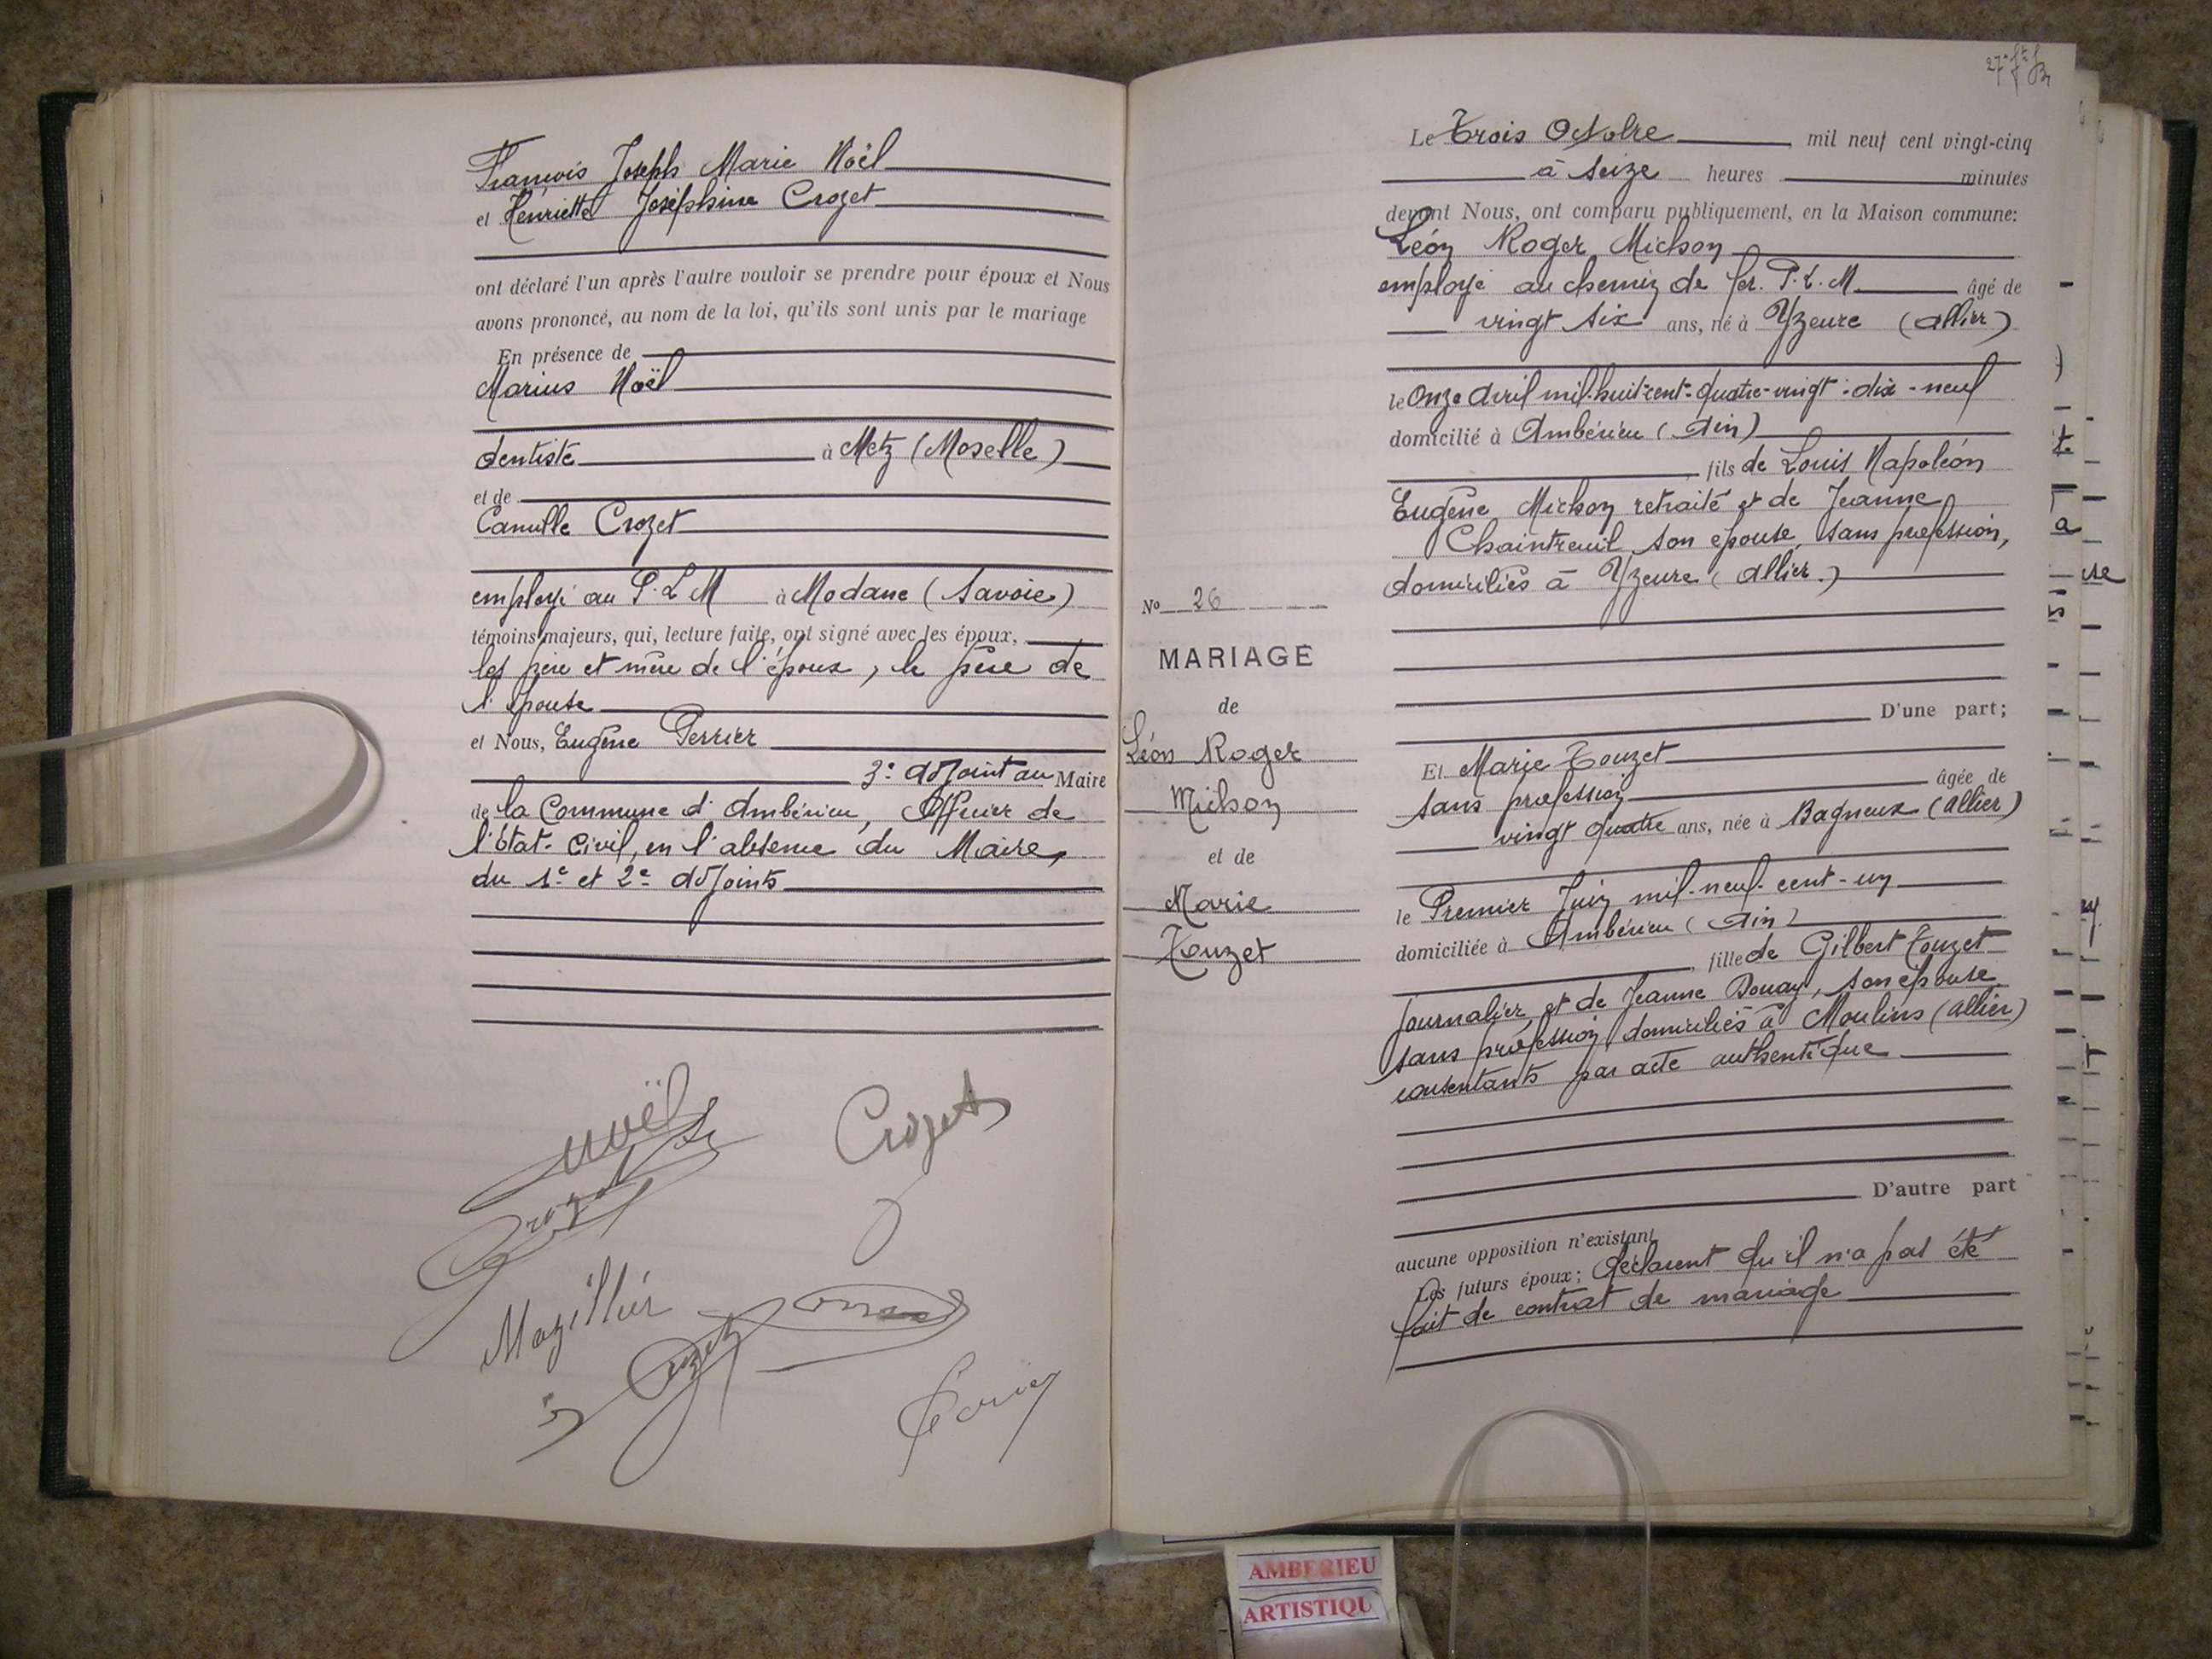 François Joseph Marie Noël
et Henriette Joséphine Crozet
ont déclaré l'un après l'autre vouloir se prendre pour époux et Nous
avons prononcé, au nom de la loi, qu'ils sont unis par le mariage
En présence de
Marius Noël
dentiste à Metz (Moselle)
et de
Camille Crozet
employé au P.L.M à Modane (Savoie)
témoins majeurs, qui, lecture faite, ont signé avec les époux,
les père et mère de l'époux, le père de
l'épouse
et Nous, Eugène Perrier
3e adjoint au Maire
de la Commune d'Ambérieu, Officier de
l'État-Civil, en l'absence du Maire,
du 1e et 2e adjoints
Noël
Crozet
Crozet
Mazillier
Crozet
No 26
MARIAGE
de
Léon Roger
Michon
et de
Marie
Touzet
Le Trois Octobre mil neuf cent vingt-cinq
à seize heures minutes
devant Nous, ont comparu publiquement, en la Maison commune:
Léon Roger Michon
employé au chemin de fer. P.L.M. âgé de
vingt six ans, né à Yzeure (Allier)
le Onze Avril mil-huit-cent-quatre-vingt-dix-neuf
domicilié à Ambérieu (Ain)
fils de Louis Napoléon
Eugène Michon retraité et de Jeanne
Chaintreuil son épouse, sans profession,
domiciliés à Yzeure (Allier.)
D'une part;
Et Marie Touzet
sans profession âgée de
vingt quatre ans, née à Bagneux (Allier)
le Premier Juin mil-neuf-cent-un
domiciliée à Ambérieu (Ain)
fille de Gilbert Touzet
journalier, et de Jeanne Douay, son épouse
sans profession, domiciliés à Moulins (Allier)
consentants par acte authentique
D'autre part
aucune opposition n'existant
Les futurs époux; déclarent qu'il n'a pas été
fait de contrat de mariage
AMBERIEU
ARTISTIQU